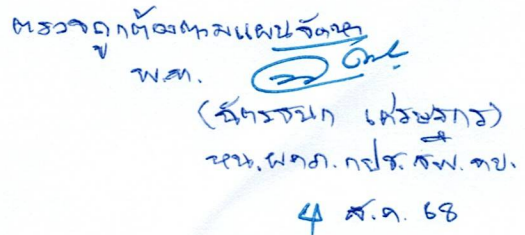 ตรวจถูกต้องตามแผนจัดหา
พ.ท.
(ฉัตรชนก เศรษฐกร)
หน.ผคภ.กปช.สพ.ทบ.
4 ส.ค. 68